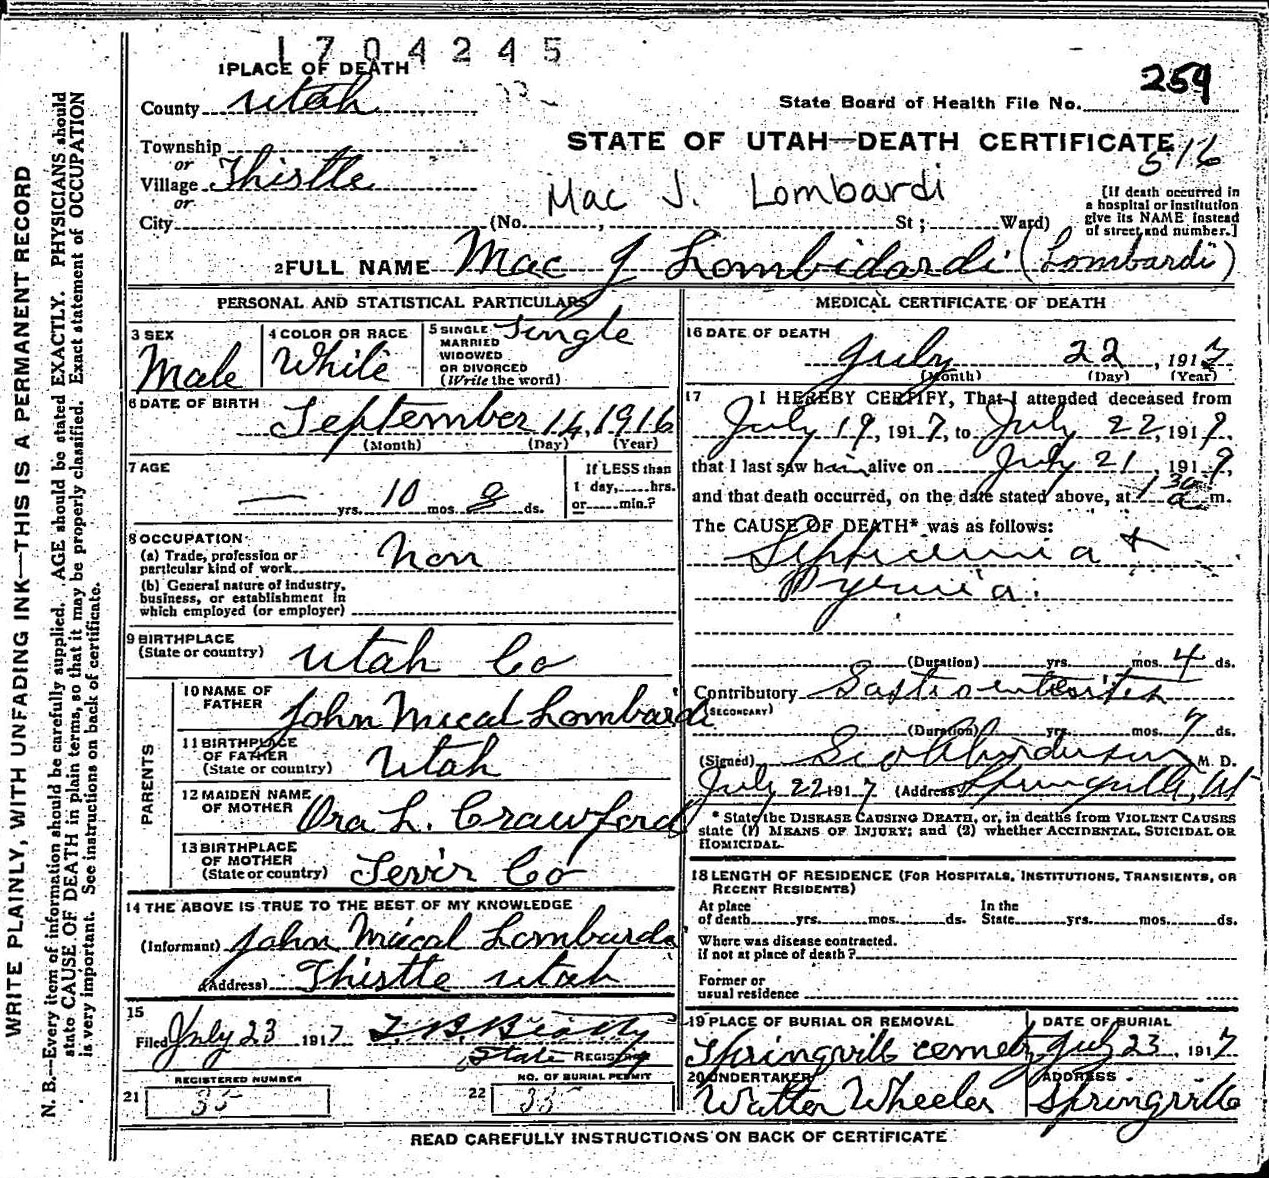 1704245
1 PLACE OF DEATH
259
County Utah
State Board of Health File No.
STATE OF UTAH—DEATH CERTIFICATE
516
Township
or
Village Thistle
or
Mac J. Lombardi
[If death occurred in
a hospital or institution
give its NAME instead
of street and number.]
City (No. , St; Ward)
2 FULL NAME Mac J Lombidardi (Lombardi)
PERSONAL AND STATISTICAL PARTICULARS
3 SEX
Male
4 COLOR OR RACE
White
5 SINGLE
MARRIED
WIDOWED
OR DIVORCED
(Write the word)
Single
6 DATE OF BIRTH
September 14, 1916
(Month) (Day) (Year)
7 AGE
— yrs. 10 mos. 8 ds.
If LESS than
1 day, hrs.
or min.?
8 OCCUPATION
(a) Trade, profession or
particular kind of work Non
(b) General nature of industry,
business, or establishment in
which employed (or employer)
9 BIRTHPLACE
(State or country) Utah Co
PARENTS
10 NAME OF
FATHER John Mical Lombardi
11 BIRTHPLACE
OF FATHER
(State or country) Utah
12 MAIDEN NAME
OF MOTHER Ora L. Crawford
13 BIRTHPLACE
OF MOTHER
(State or country) Sevir Co
14 THE ABOVE IS TRUE TO THE BEST OF MY KNOWLEDGE
(Informant) John Mical Lombardi
(Address) Thistle Utah
15
Filed July 23 1917 T. B. Beatty
State REGISTRAR
REGISTERED NUMBER
21 35
NO. OF BURIAL PERMIT
22 35
MEDICAL CERTIFICATE OF DEATH
16 DATE OF DEATH
July 22, 1917
(Month) (Day) (Year)
17 I HEREBY CERTIFY, That I attended deceased from
July 19, 1917, to July 22, 1917,
that I last saw him alive on July 21, 1917,
and that death occurred, on the date stated above, at 1 30 a m.
The CAUSE OF DEATH* was as follows:
Septicemia +
Pyemia.
(Duration) yrs. mos. 4 ds.
Contributory Gastroenteritis
(SECONDARY)
(Duration) yrs. mos. 7 ds.
(Signed) Geo Anderson M. D.
July 22 1917 (Address) Springville, Ut
* State the DISEASE CAUSING DEATH, or, in deaths from VIOLENT CAUSES
state (1) MEANS OF INJURY; and (2) whether ACCIDENTAL, SUICIDAL OR
HOMICIDAL.
18 LENGTH OF RESIDENCE (FOR HOSPITALS, INSTITUTIONS, TRANSIENTS, OR
RECENT RESIDENTS)
At place
of death yrs. mos. ds.
In the
State yrs. mos. ds.
Where was disease contracted.
if not at place of death?
Former or
usual residence
19 PLACE OF BURIAL OR REMOVAL
Springville cemety
DATE OF BURIAL
July 23 1917
20 UNDERTAKER
Walter Wheeler
ADDRESS
Springville
READ CAREFULLY INSTRUCTIONS ON BACK OF CERTIFICATE
WRITE PLAINLY, WITH UNFADING INK—THIS IS A PERMANENT RECORD
N. B.—Every item of information should be carefully supplied. AGE should be stated EXACTLY. PHYSICIANS should
state CAUSE OF DEATH in plain terms, so that it may be properly classified. Exact statement of OCCUPATION
is very important. See instructions on back of certificate.